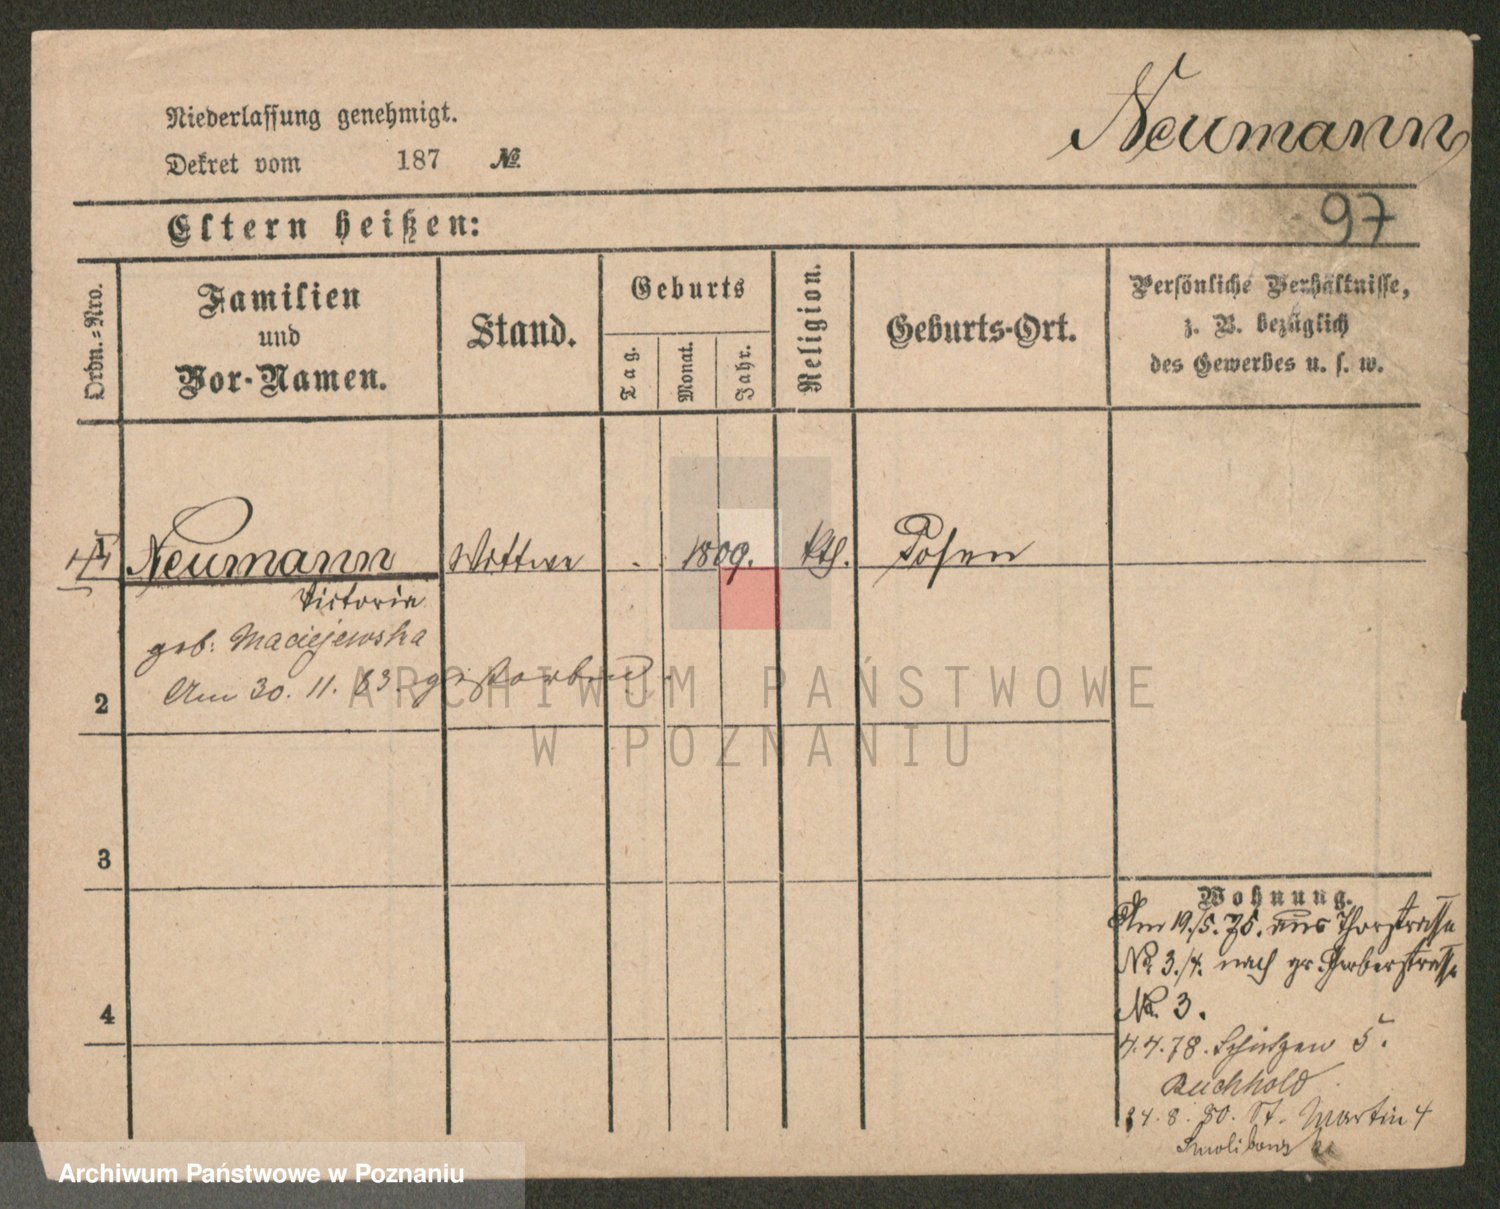 Neumann
Niederlassung genehmigt.
Dekret vom 187 №
97
Eltern heißen:
Ordn.-Nro.
Familien
und
Vor-Namen.
Stand.
Geburts
Tag.
Monat.
Jahr.
Religion.
Geburts-Ort.
Persönliche Verhältnisse,
z. B. bezüglich
des Gewerbes u. s. w.
1 Neumann Wittwe . . 1809. kth. Posen
Victoria
geb. Maciejewska
Am 30. 11. 83. gestorben.
2
3
4
Wohnung.
Am 19./5. 75. aus Thorstrasse
No. 3./4. nach gr. Gerberstrasse
No. 3.
4.4.78. Schützen 5.
Buchhold
24.8.80. St. Martin 4
ARCHIWUM PAŃSTWOWE
W POZNANIU
Archiwum Państwowe w Poznaniu